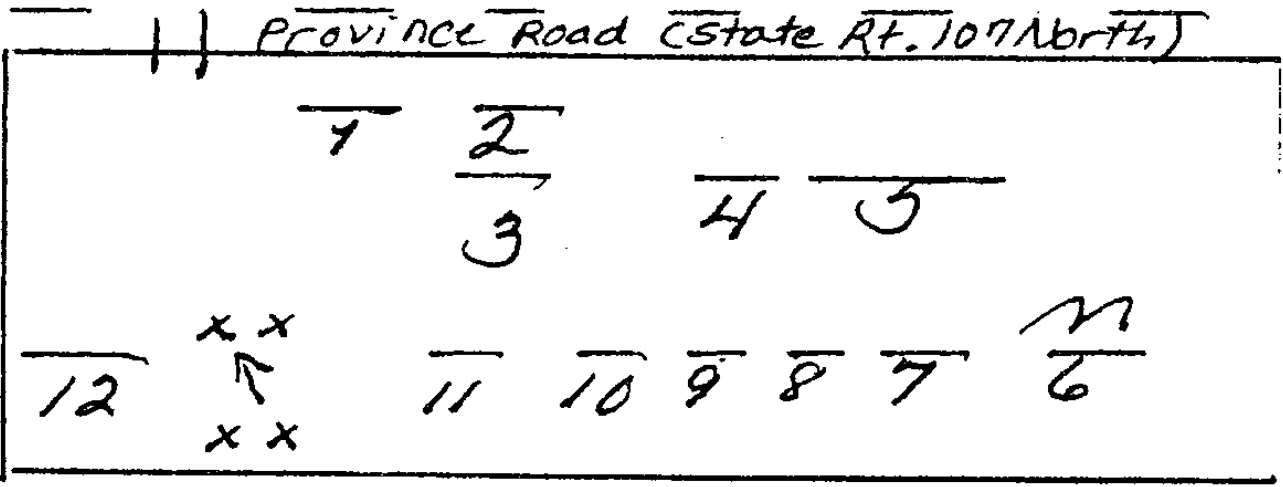 Province Road (State Rt. 107 North)
1 2
3 4 5
x x
12 11 10 9 8 7 6
x x